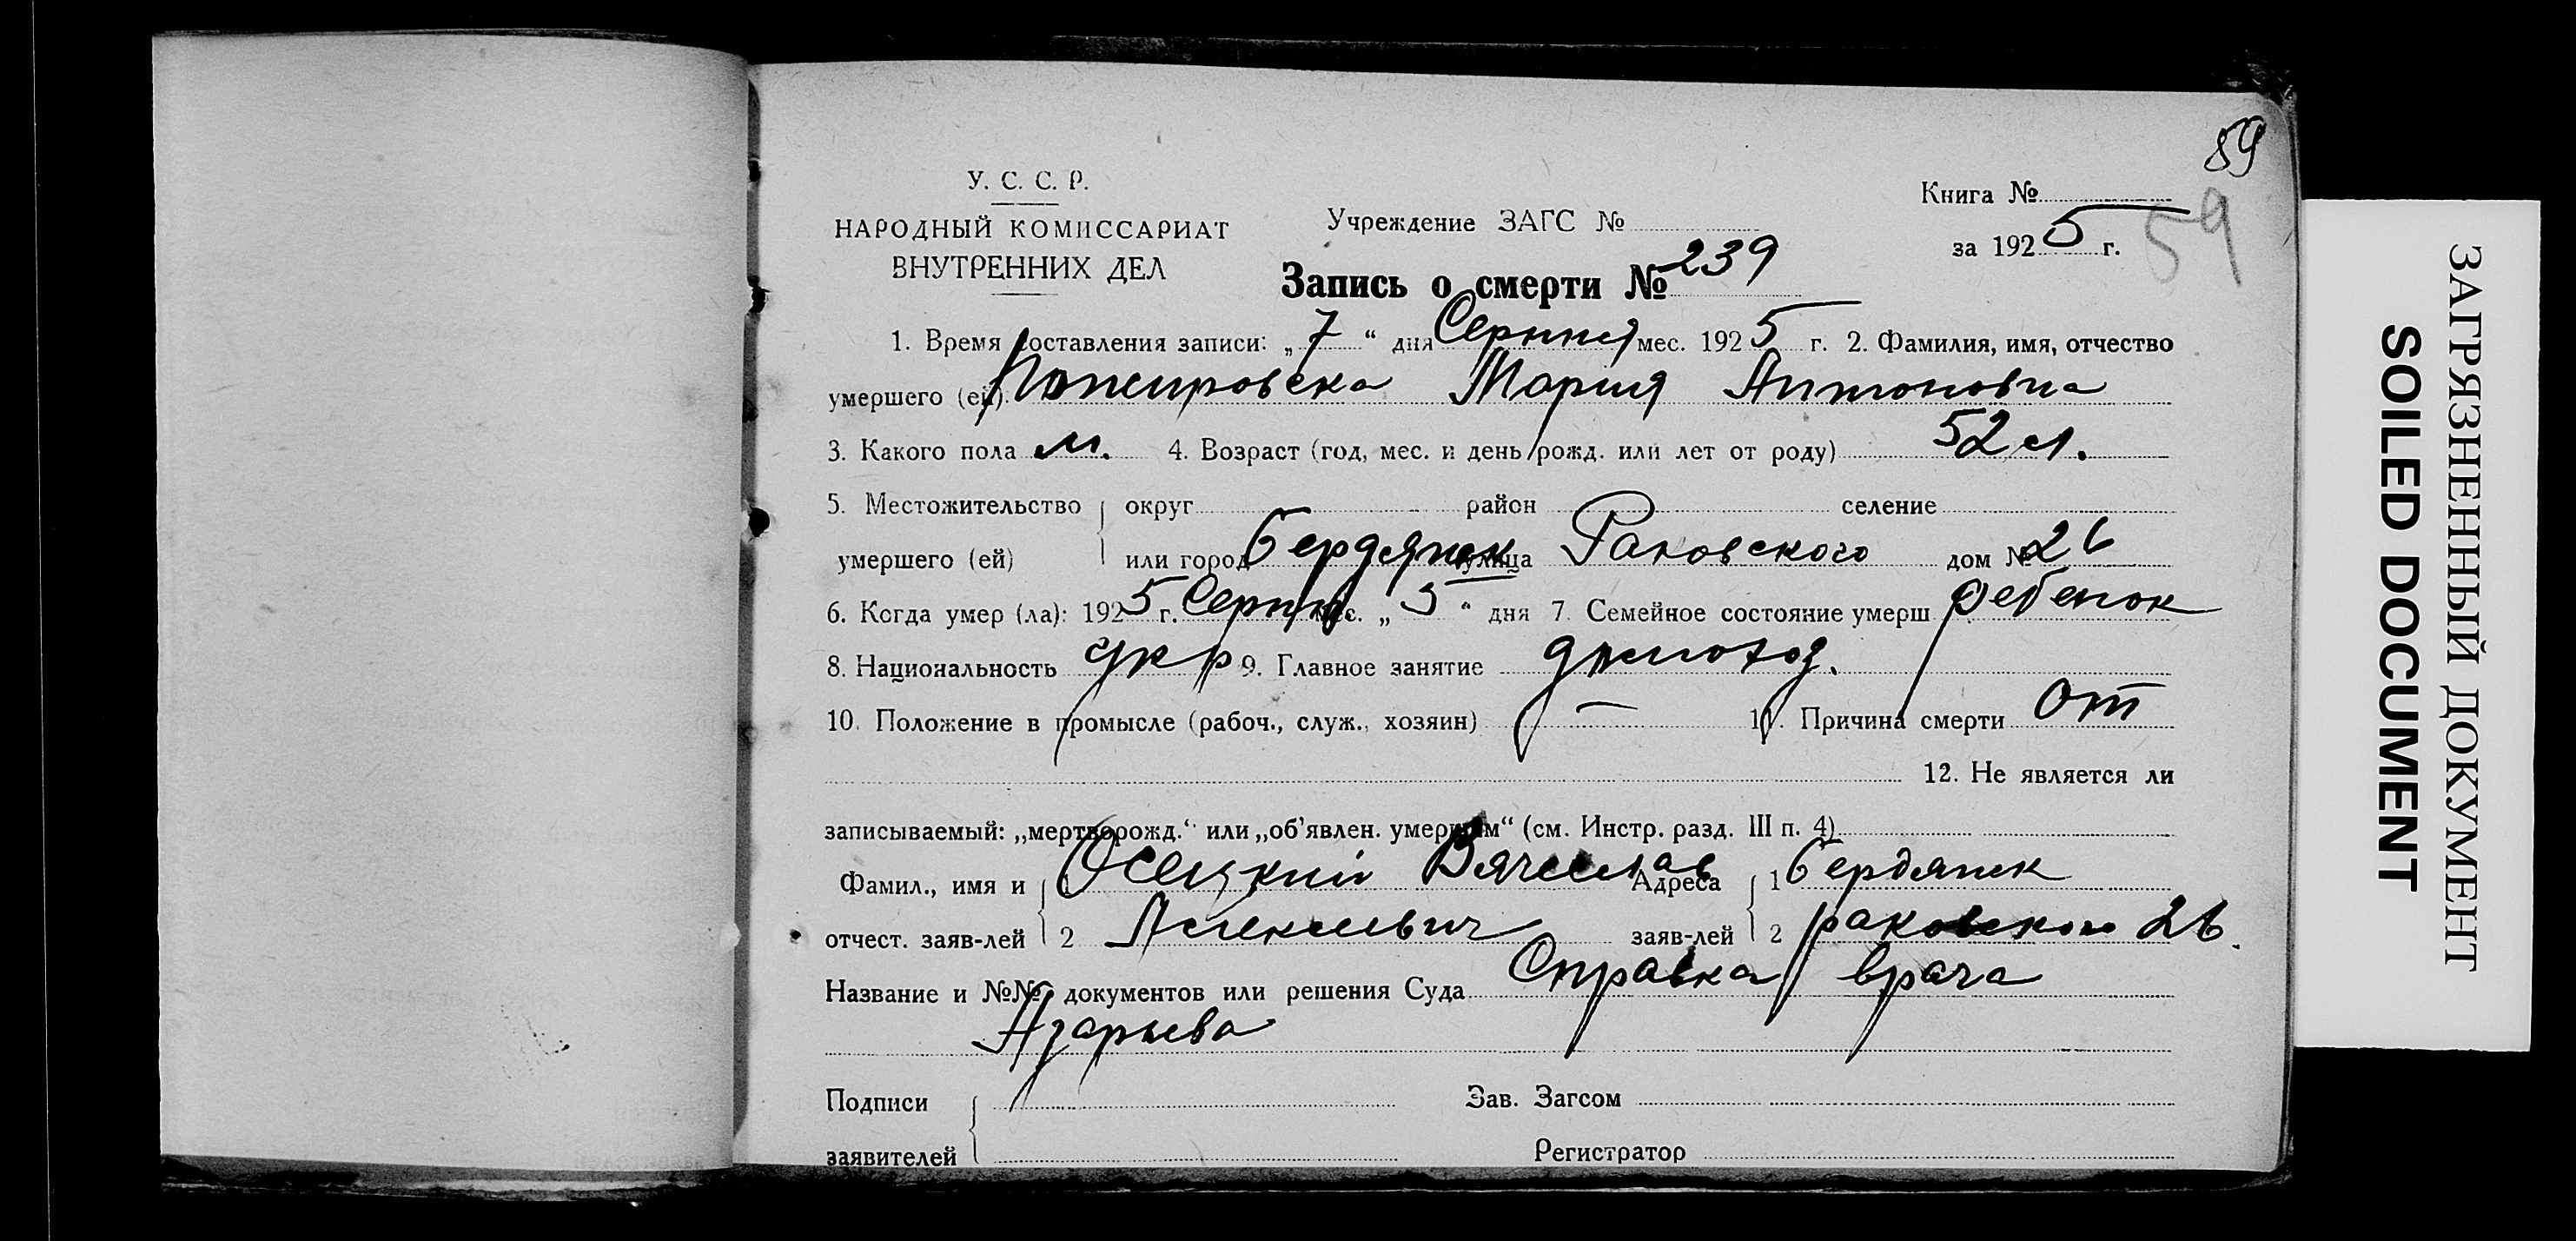 89
У. С. С. Р.
НАРОДНЫЙ КОМИССАРИАТ
ВНУТРЕННИХ ДЕЛ
Учреждение ЗАГС №
Книга №
за 1925 г. 59
Запись о смерти № 239
1. Время составления записи: „7“ дня Серпня мес. 1925 г. 2. Фамилия, имя, отчество
умершего (ей) Мария Антоновна
3. Какого пола м. 4. Возраст (год, мес. и день рожд. или лет от роду) 52 л.
5. Местожительство округ район селение
умершего (ей) или город Бердянск улица Раковского дом № 26
6. Когда умер (ла): 1925 г. Серпня мес. „5“ дня 7. Семейное состояние умерш ребенок
8. Национальность укр 9. Главное занятие
10. Положение в промысле (рабоч., служ., хозяин) — 11. Причина смерти от
12. Не является ли
записываемый: „мертворожд.“ или „об'явлен. умершим“ (см. Инстр. разд. III п. 4)
Фамил., имя и 1 Осецкий Вячеслав Адреса 1 Бердянск
отчест. заяв-лей 2 Алексеевич заяв-лей 2 Раковского 26.
Название и №№ документов или решения Суда Справка врача
Азарьева
Подписи Зав. Загсом
заявителей Регистратор
ЗАГРЯЗНЕННЫЙ ДОКУМЕНТ
SOILED DOCUMENT